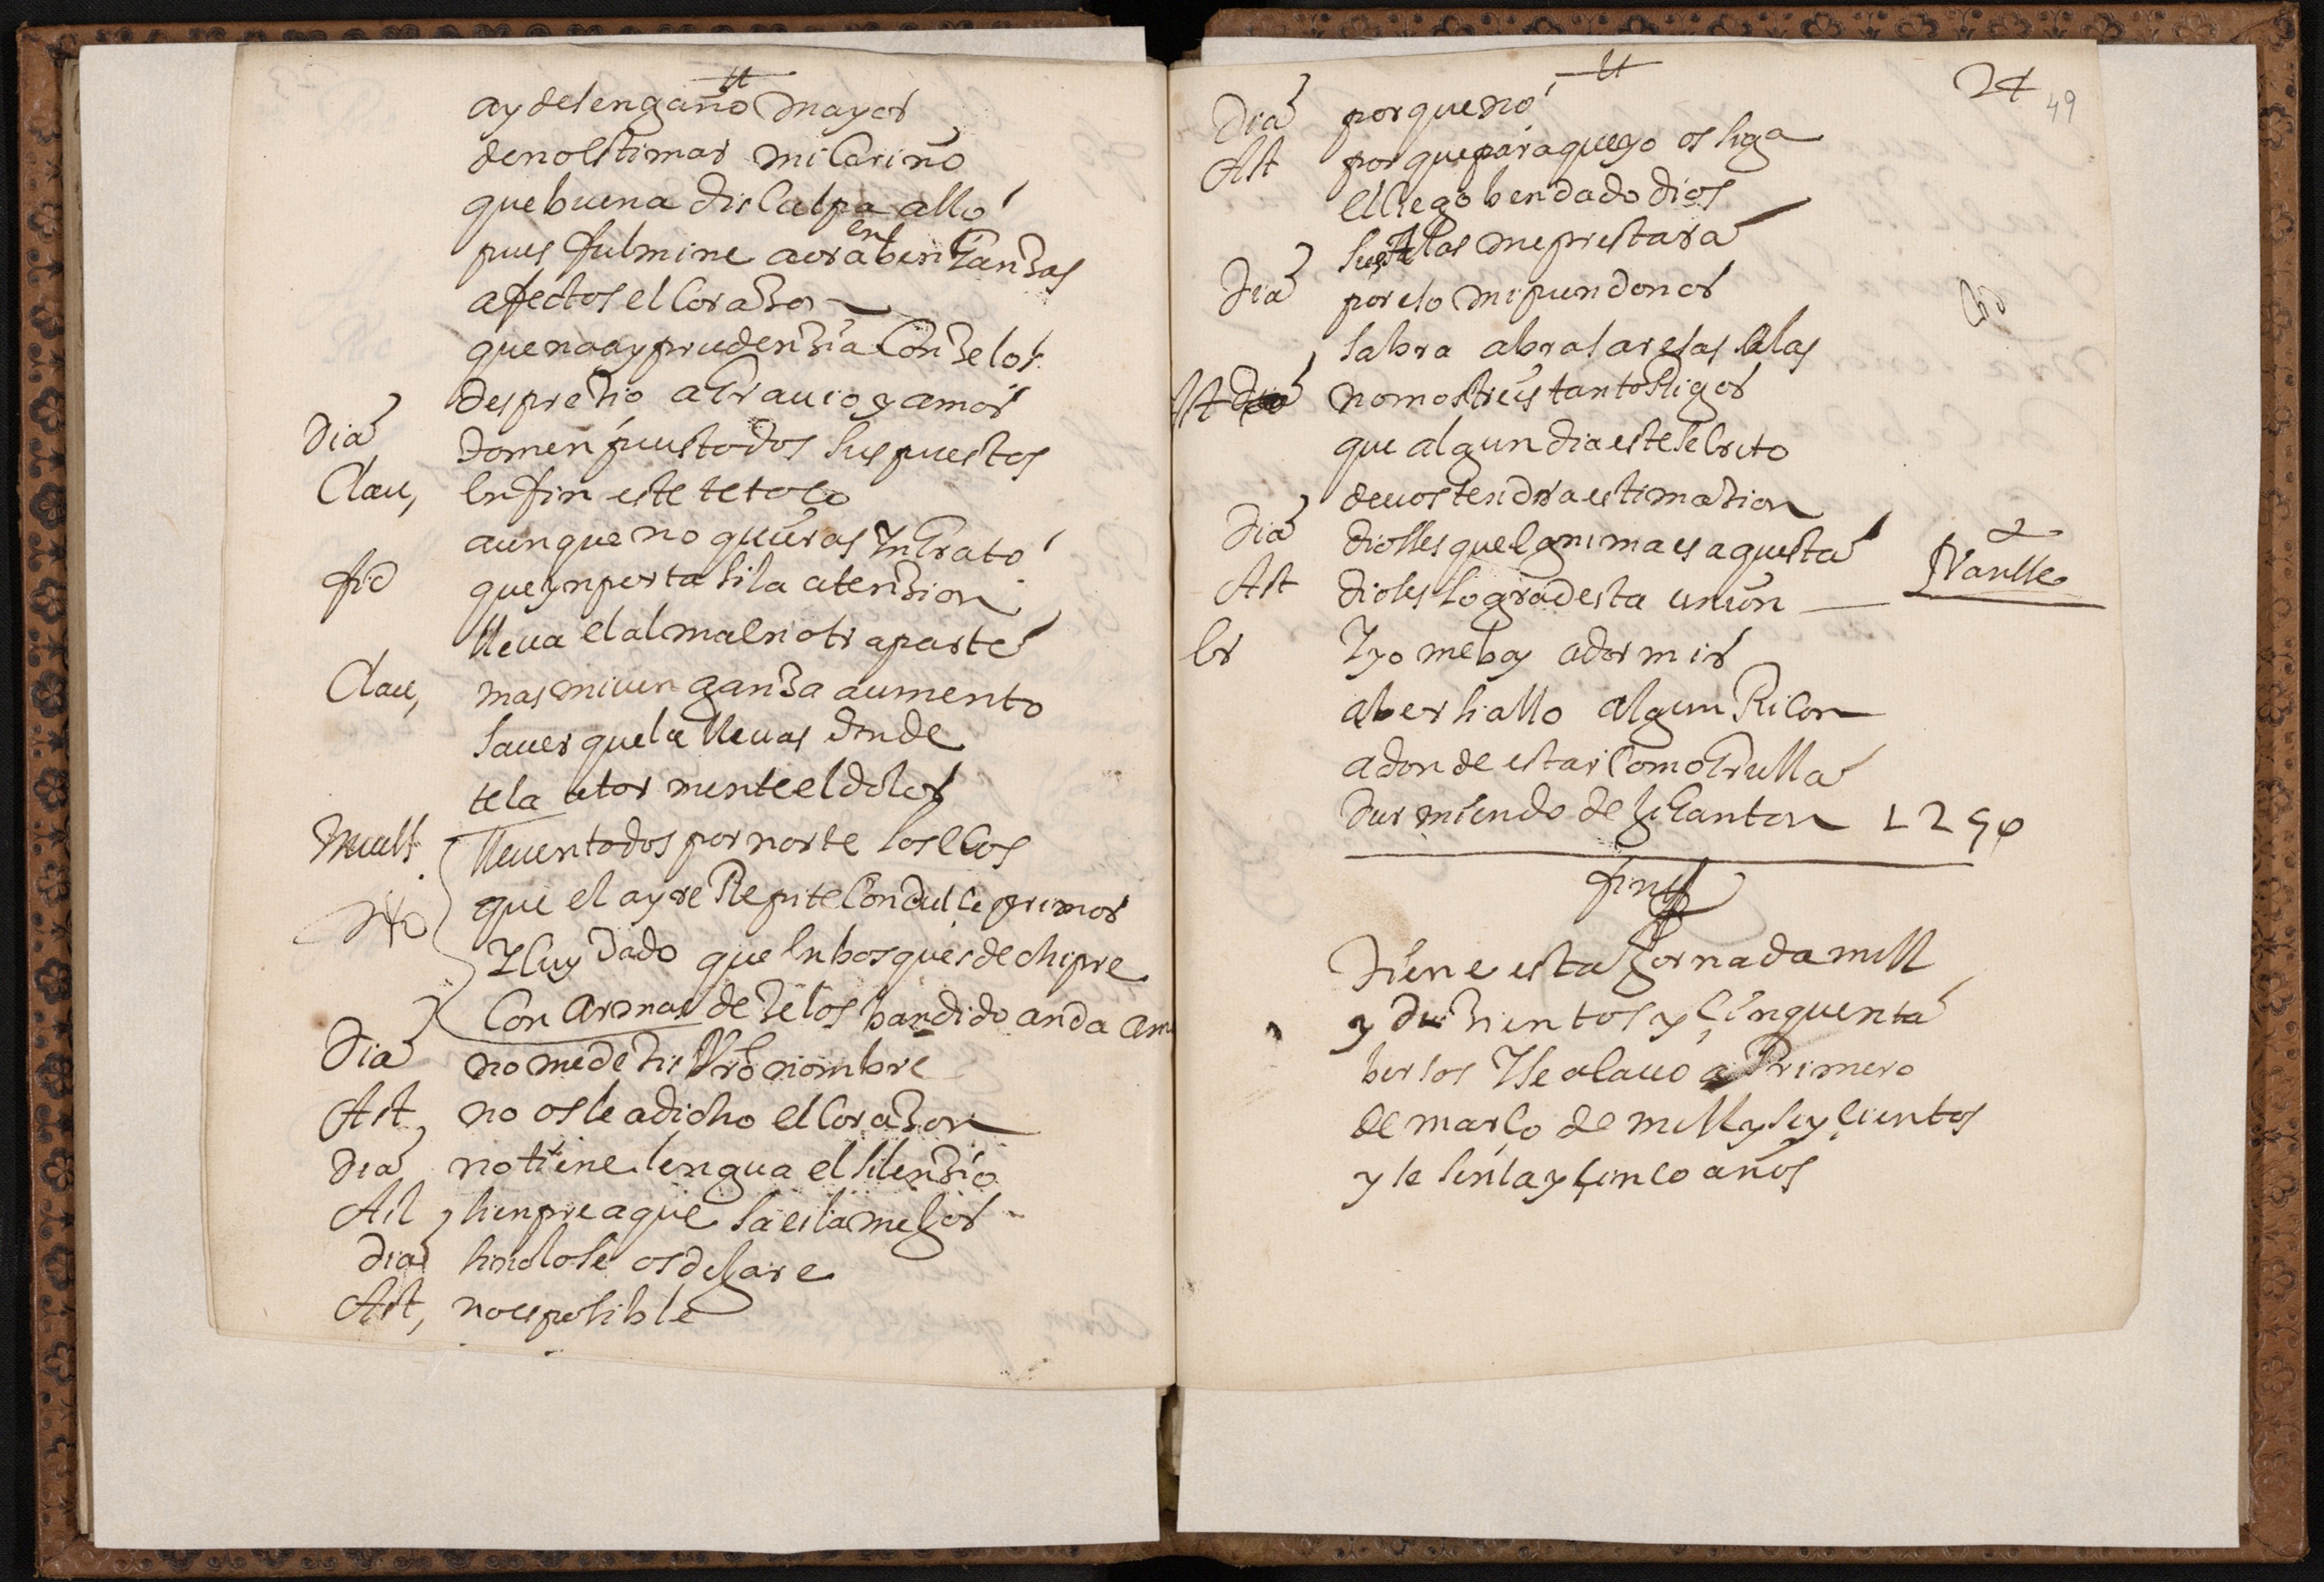 ay desengaño mayor
de no estimar mi cariño
que buena disculpa allo
pues fulmine aora en benganzas
afectos el corazon
que no ay prudenzia con zelos
desprezio agrauio y amor
Dia domen pues todos sus puestos
Clau, en fin este te toco
aunque no quieras yngrato
fid que ynporta si la atenzion
lleua el alma en otra parte
Clau, mas mi uenganza aumento
sauer que la lleuas donde
te la atormente el dolor
Mus lleuen todos por norte los ecos
que el ayre Repite con dulce primor
Y cuydado que en bosques de chipre
con armas de zelos bandido anda am
Dia no me dezis Vro nombre
Ast, no os le a dicho el corazon
Dia no tiene lengua el silenzio
Ast, sienpre aquesa es la mejor
Dia siendo se os dejare
Ast, no es posible
24
49
Dia por que no
Ast por que para que yo os siga
el ciego bendado dios
sus Alas me prestara
Dia por eso mi pundonor
sabra abrasar esas alas
Ast no mostreis tanto Rigor
que algun dia este secreto
de uos tendra estimazion
Dia dioses que enima es aquesta
Ast dioses lograd esta union
Vanse
er Y yo me boy a dormir
a ber si allo algun Ricon
a donde estar como grulla
durmiendo de jiganton 1250
finis
Tiene esta Jornada mill
y duzientos y çinquenta
bersos Y se acauo a Primero
de março de mill y seyçientos
y sesenta y çinco años